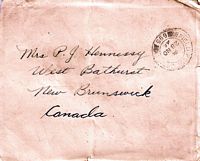 Mrs P. J Hennessy
West Bathurst
New Brunswick
Canada.